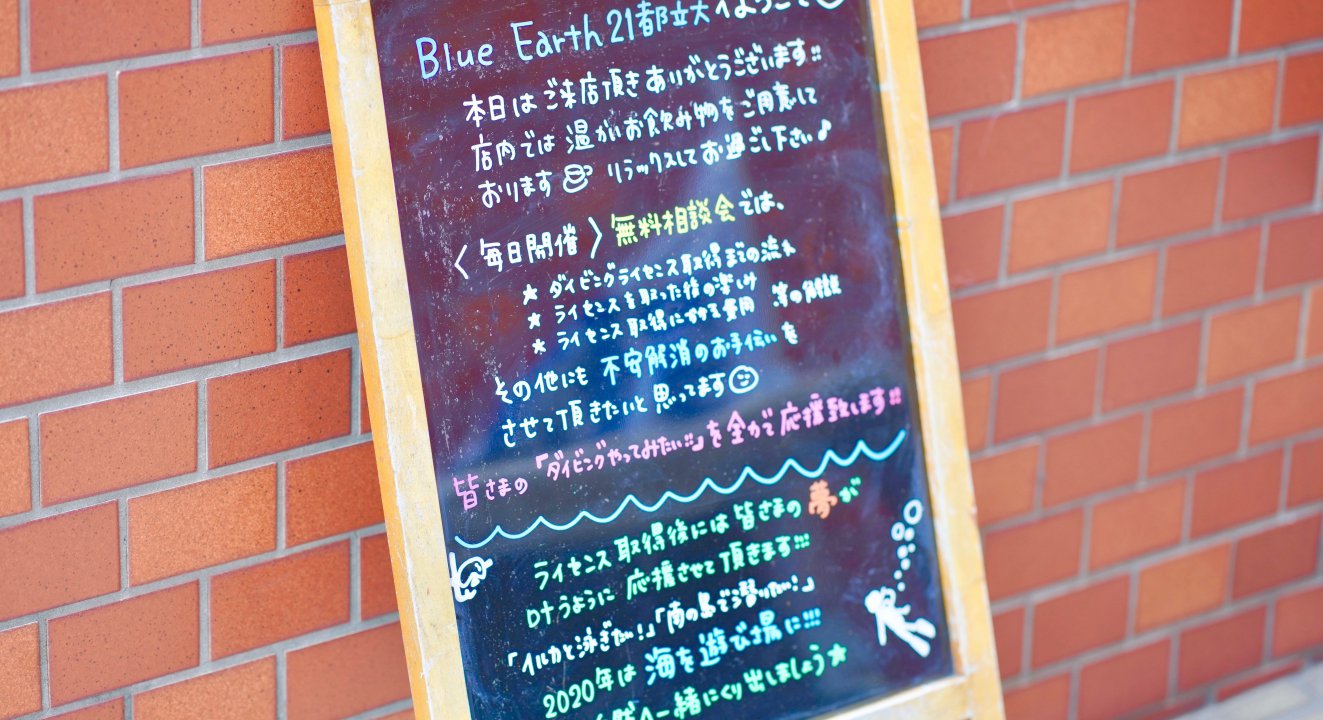 Blue Earth 21都立大へようこそ
本日はご来店頂きありがとうございます!!
店内では温かいお飲み物をご用意して
おります リラックスしてお過ごし下さい♪
〈毎日開催〉無料相談会では、
★ ダイビングライセンス取得までの流れ
★ ライセンスを取った後の楽しみ
★ ライセンス取得にかかる費用 等の解説
その他にも 不安解消のお手伝いを
させて頂きたいと思ってます
皆さまの「ダイビングやってみたい!!」を全力で応援致します!!
ライセンス取得後には皆さまの夢が
叶うように応援させて頂きます!!!
「イルカと泳ぎたい!」「南の島で潜りたい!」
2020年は海を遊び場に!!!
へ一緒にくり出しましょう★